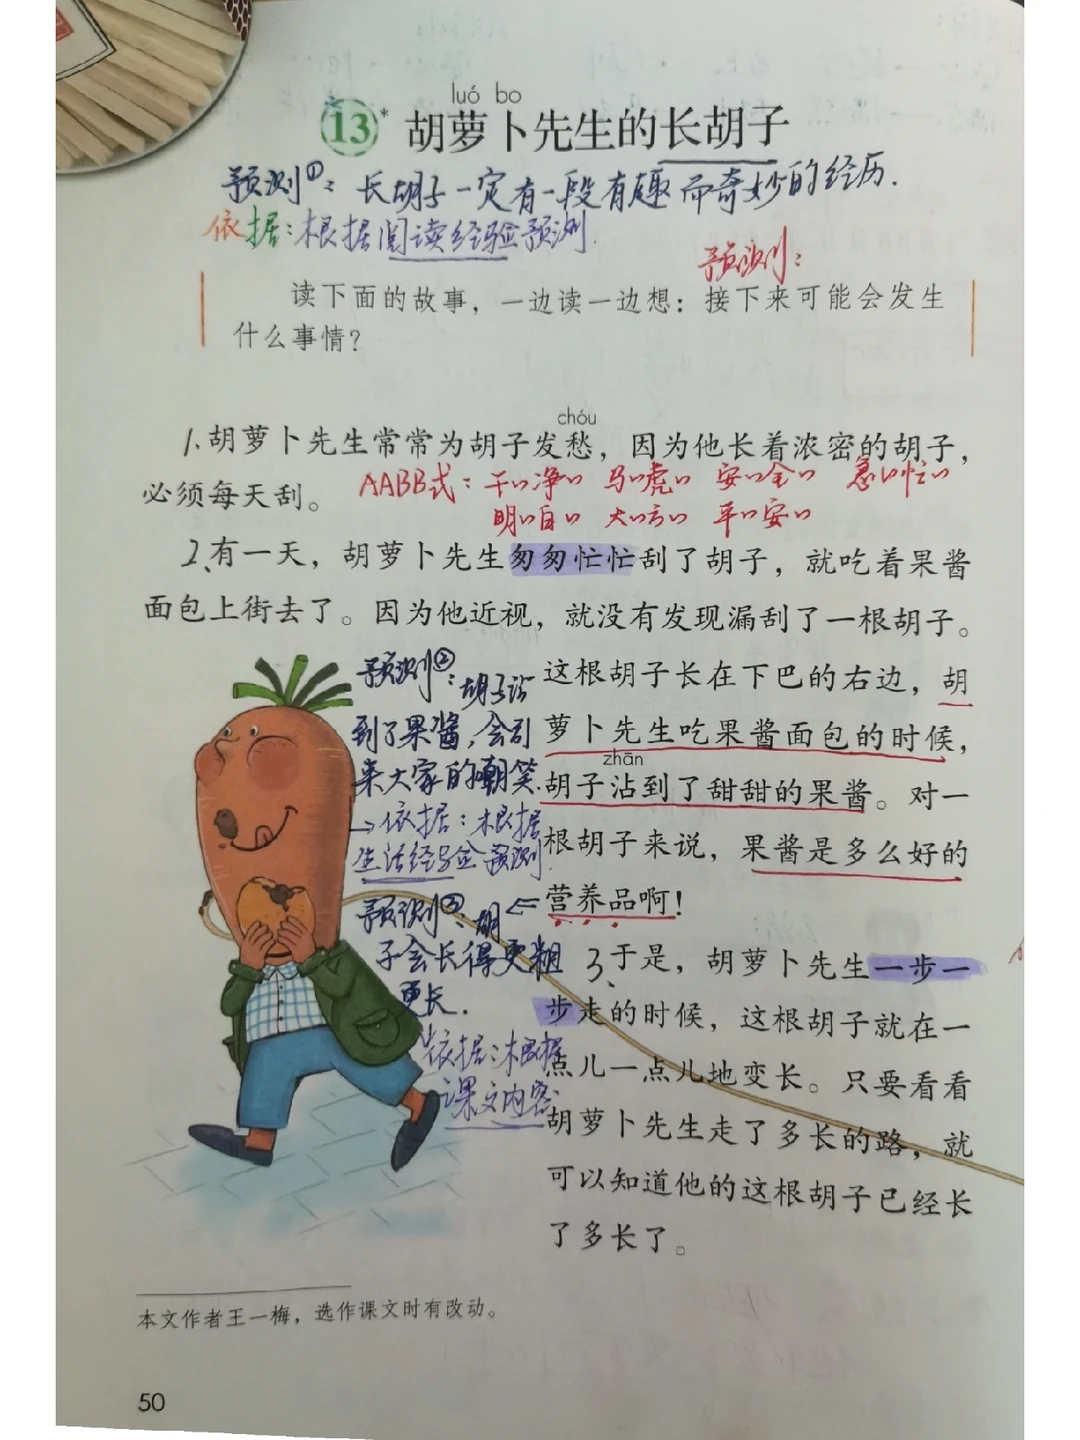 luó bo
13* 胡萝卜先生的长胡子
预测①：长胡子一定有一段有趣而奇妙的经历.
依据：根据阅读经验预测.
预测：
读下面的故事，一边读一边想：接下来可能会发生
什么事情？
chóu
1.胡萝卜先生常常为胡子发愁，因为他长着浓密的胡子，
必须每天刮。
AABB式：干〃净〃 马〃虎〃 安〃全〃 急〃忙〃
明〃白〃 大〃方〃 平〃安〃
2、有一天，胡萝卜先生匆匆忙忙刮了胡子，就吃着果酱
面包上街去了。因为他近视，就没有发现漏刮了一根胡子。
这根胡子长在下巴的右边，胡
萝卜先生吃果酱面包的时候，
zhān
胡子沾到了甜甜的果酱。对一
根胡子来说，果酱是多么好的
营养品啊！
预测②：胡子沾
到了果酱，会引
来大家的嘲笑.
→依据：根据
生活经验预测.
预测③：胡
子会长得更粗
更长.
依据：根据
课文内容
3、于是，胡萝卜先生一步一
步走的时候，这根胡子就在一
点儿一点儿地变长。只要看看
胡萝卜先生走了多长的路，就
可以知道他的这根胡子已经长
了多长了。
本文作者王一梅，选作课文时有改动。
50